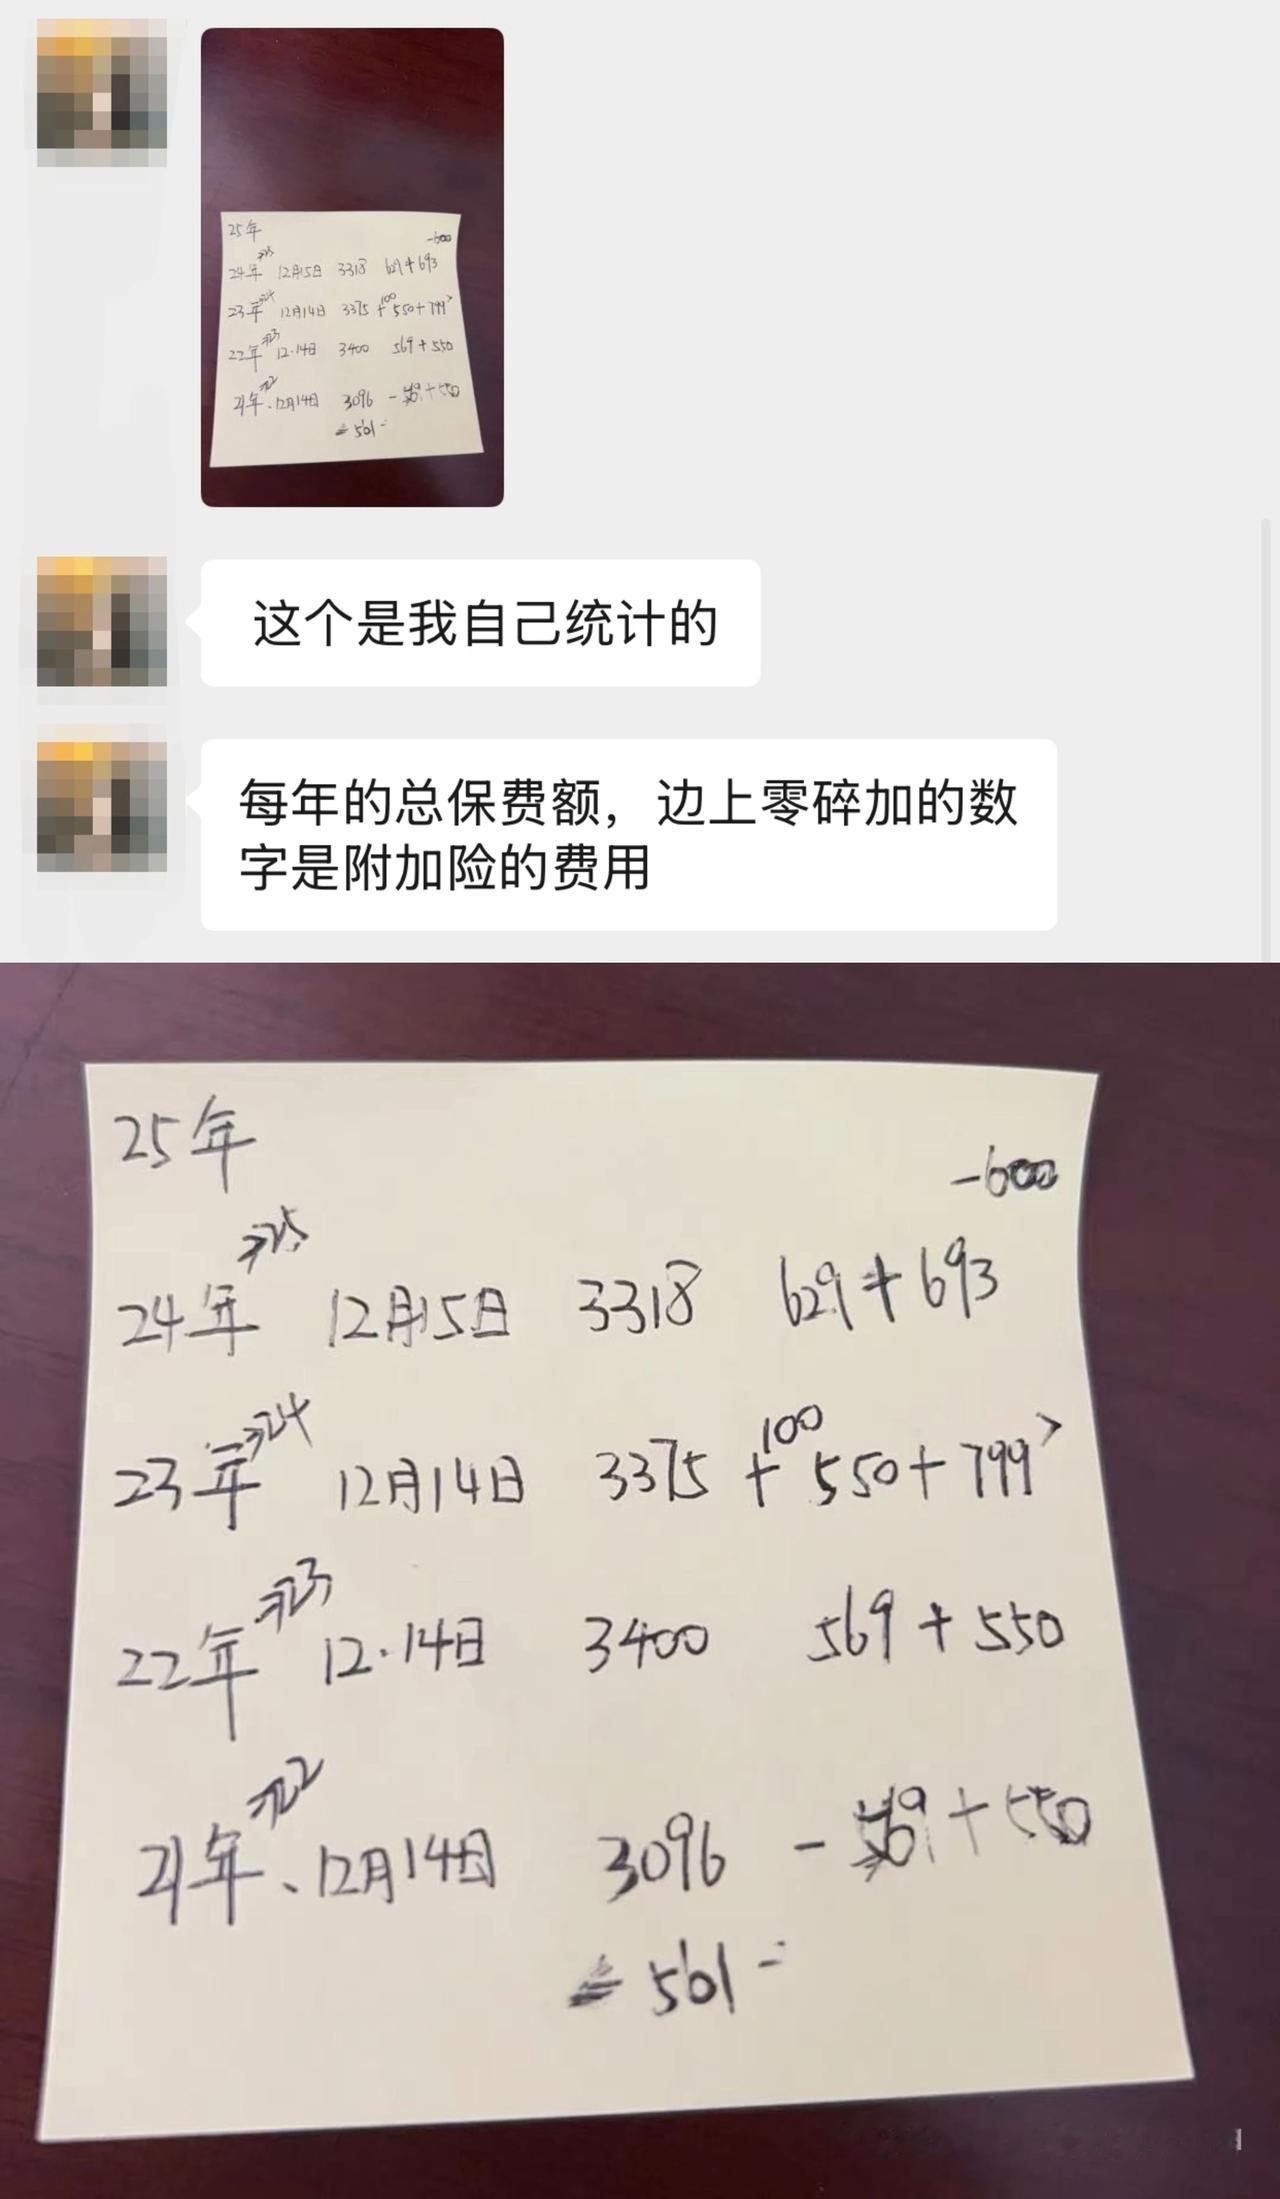 25年
-600
24年 →25 12月15日 3318 629+693
23年 →24 12月14日 3375 + 100 550+799
22年 →23 12.14日 3400 569+550
21年 →22 、12月14日 3096 - 569+550
501-
这个是我自己统计的
每年的总保费额，边上零碎加的数
字是附加险的费用
25年
-600
24年 →25 12月15日 3318 629+693
23年 →24 12月14日 3375 + 100 550+799
22年 →23 12.14日 3400 569+550
21年 →22 、12月14日 3096 - 569+550
501-